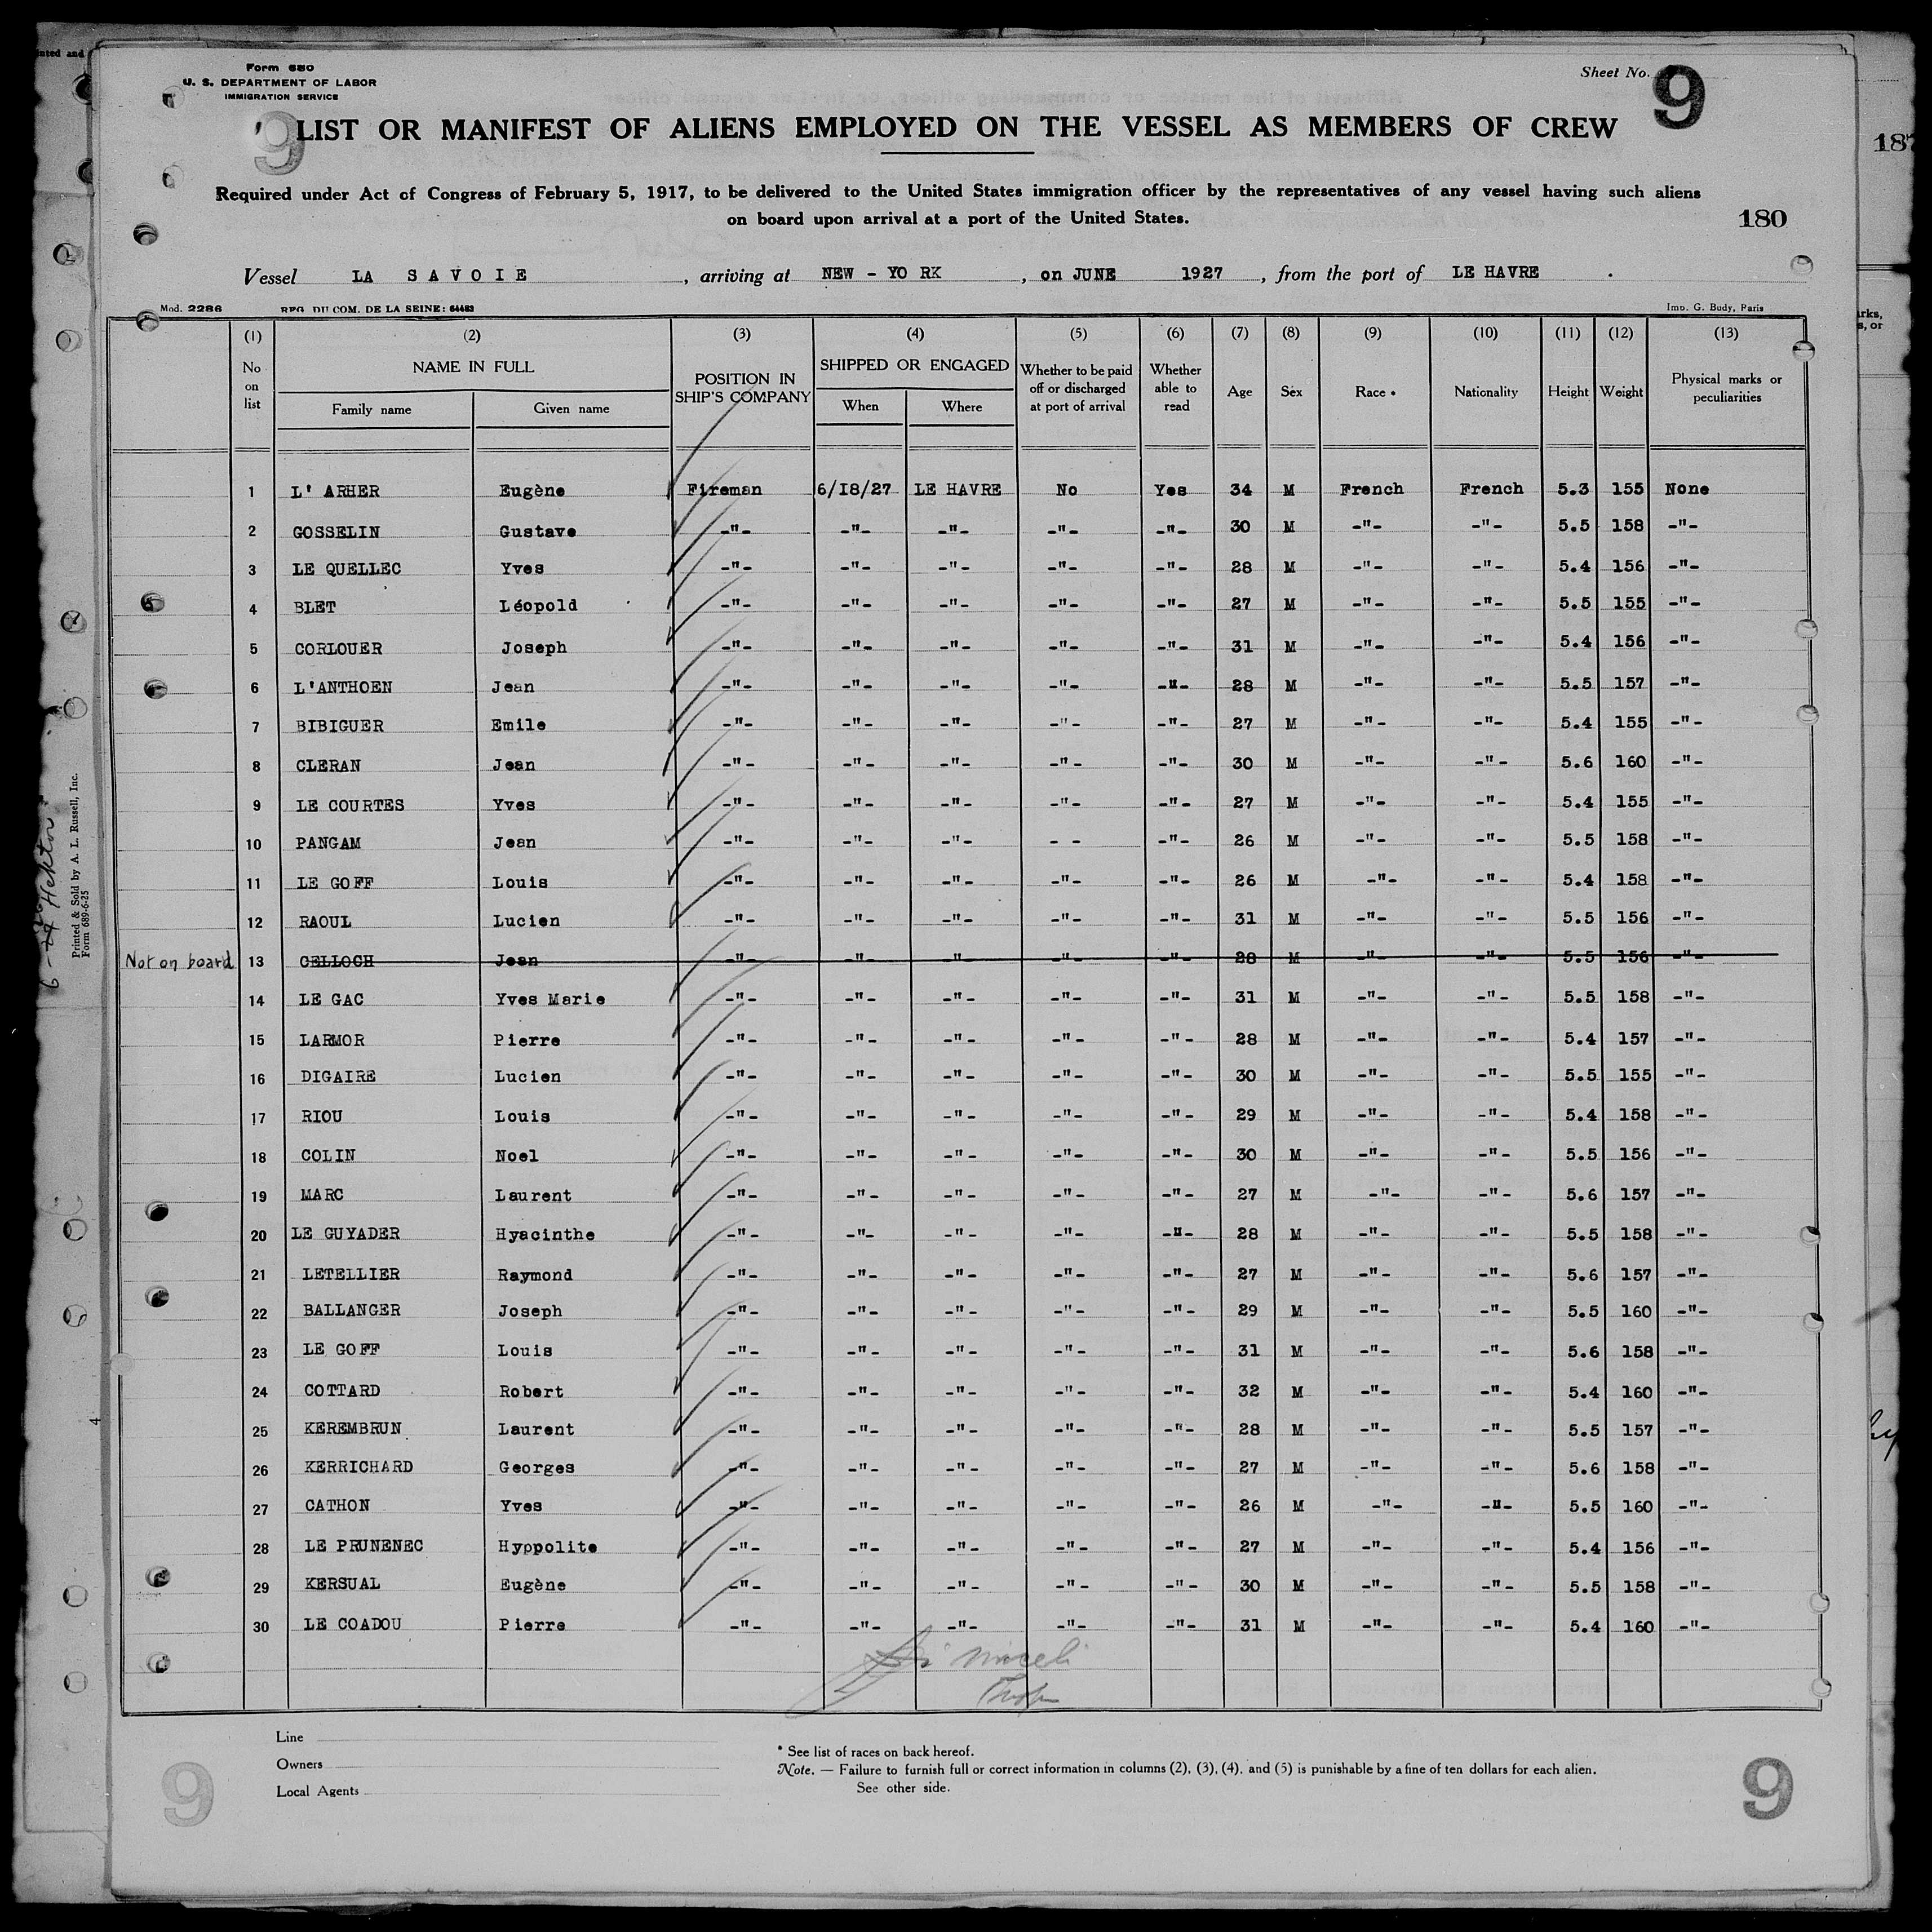 Form 680
U. S. DEPARTMENT OF LABOR
IMMIGRATION SERVICE
Sheet No. 9
9
LIST OR MANIFEST OF ALIENS EMPLOYED ON THE VESSEL AS MEMBERS OF CREW
Required under Act of Congress of February 5, 1917, to be delivered to the United States immigration officer by the representatives of any vessel having such aliens
on board upon arrival at a port of the United States.
180
Vessel LA SAVOIE, arriving at NEW - YO RK, on JUNE 1927, from the port of LE HAVRE.
Mod. 2286 REG. DU COM. DE LA SEINE: 64483 Imp. G. Budy, Paris
(1) (2) (3) (4) (5) (6) (7) (8) (9) (10) (11) (12) (13)
No on list NAME IN FULL Family name Given name POSITION IN SHIP'S COMPANY SHIPPED OR ENGAGED When Where Whether to be paid off or discharged at port of arrival Whether able to read Age Sex Race * Nationality Height Weight Physical marks or peculiarities
1 L' ARHER Eugène Fireman 6/18/27 LE HAVRE No Yes 34 M French French 5.3 155 None
2 GOSSELIN Gustave -"- -"- -"- -"- -"- 30 M -"- -"- 5.5 158 -"-
3 LE QUELLEC Yves -"- -"- -"- -"- -"- 28 M -"- -"- 5.4 156 -"-
4 BLET Léopold -"- -"- -"- -"- -"- 27 M -"- -"- 5.5 155 -"-
5 CORLOUER Joseph -"- -"- -"- -"- -"- 31 M -"- -"- 5.4 156 -"-
6 L'ANTHOEN Jean -"- -"- -"- -"- -"- 28 M -"- -"- 5.5 157 -"-
7 BIBIGUER Emile -"- -"- -"- -"- -"- 27 M -"- -"- 5.4 155 -"-
8 CLERAN Jean -"- -"- -"- -"- -"- 30 M -"- -"- 5.6 160 -"-
9 LE COURTES Yves -"- -"- -"- -"- -"- 27 M -"- -"- 5.4 155 -"-
10 PANGAM Jean -"- -"- -"- - - -"- 26 M -"- -"- 5.5 158 -"-
11 LE GOFF Louis -"- -"- -"- -"- -"- 26 M -"- -"- 5.4 158 -"-
12 RAOUL Lucien -"- -"- -"- -"- -"- 31 M -"- -"- 5.5 156 -"-
Not on board 13 CELLOCH Jean -"- -"- -"- -"- -"- 28 M -"- -"- 5.5 156 -"-
14 LE GAC Yves Marie -"- -"- -"- -"- -"- 31 M -"- -"- 5.5 158 -"-
15 LARMOR Pierre -"- -"- -"- -"- -"- 28 M -"- -"- 5.4 157 -"-
16 DIGAIRE Lucien -"- -"- -"- -"- -"- 30 M -"- -"- 5.5 155 -"-
17 RIOU Louis -"- -"- -"- -"- -"- 29 M -"- -"- 5.4 158 -"-
18 COLIN Noel -"- -"- -"- -"- -"- 30 M -"- -"- 5.5 156 -"-
19 MARC Laurent -"- -"- -"- -"- -"- 27 M -"- -"- 5.6 157 -"-
20 LE GUYADER Hyacinthe -"- -"- -"- -"- -"- 28 M -"- -"- 5.5 158 -"-
21 LETELLIER Raymond -"- -"- -"- -"- -"- 27 M -"- -"- 5.6 157 -"-
22 BALLANGER Joseph -"- -"- -"- -"- -"- 29 M -"- -"- 5.5 160 -"-
23 LE GOFF Louis -"- -"- -"- -"- -"- 31 M -"- -"- 5.6 158 -"-
24 COTTARD Robert -"- -"- -"- -"- -"- 32 M -"- -"- 5.4 160 -"-
25 KEREMBRUN Laurent -"- -"- -"- -"- -"- 28 M -"- -"- 5.5 157 -"-
26 KERRICHARD Georges -"- -"- -"- -"- -"- 27 M -"- -"- 5.6 158 -"-
27 CATHON Yves -"- -"- -"- -"- -"- 26 M -"- -"- 5.5 160 -"-
28 LE PRUNENEC Hyppolite -"- -"- -"- -"- -"- 27 M -"- -"- 5.4 156 -"-
29 KERSUAL Eugène -"- -"- -"- -"- -"- 30 M -"- -"- 5.5 158 -"-
30 LE COADOU Pierre -"- -"- -"- -"- -"- 31 M -"- -"- 5.4 160 -"-
Line
Owners
Local Agents
* See list of races on back hereof.
Note. — Failure to furnish full or correct information in columns (2), (3), (4), and (5) is punishable by a fine of ten dollars for each alien.
See other side.
9
9
Printed & Sold by A. L. Russell, Inc.
Form 689-6-25
4